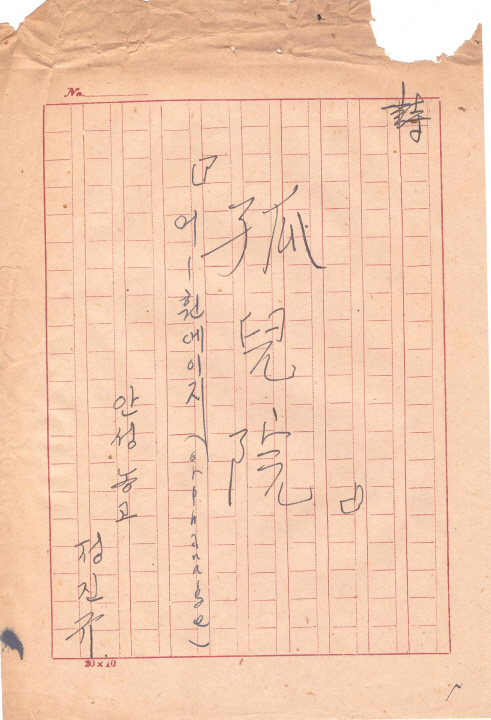 No.
詩
『孤兒院』
어ー훤에이지 (orphanage)
안성 농고
정진규
20×10